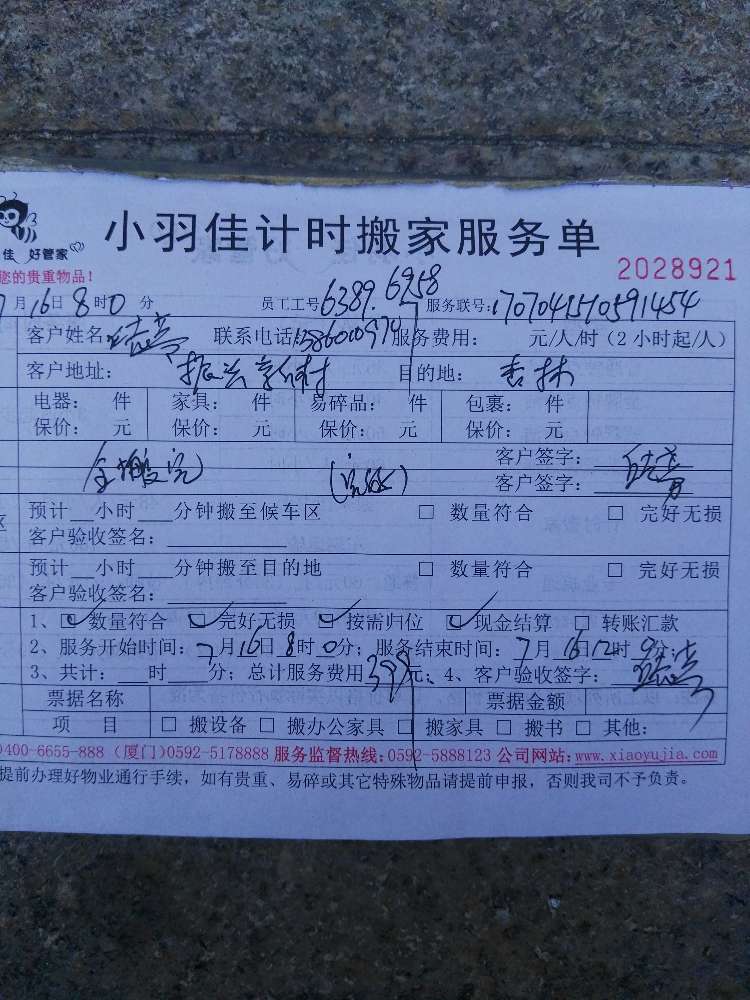 小羽佳计时搬家服务单
佳 好管家
您的贵重物品！
2028921
7月16日8时0分 员工工号6389.6958 服务联号：1707041510591454
客户姓名： 联系电话： 服务费用： 元/人/时（2小时起/人）
客户地址： 目的地：杏林
电器： 件 家具： 件 易碎品： 件 包裹： 件
保价： 元 保价： 元 保价： 元 保价： 元
全搬完
客户签字：
客户签字：
预计__小时___分钟搬至候车区 □ 数量符合 □ 完好无损
区 客户验收签名：
预计__小时___分钟搬至目的地 □ 数量符合 □ 完好无损
客户验收签名：
1、☑ 数量符合 ☑ 完好无损 ☑ 按需归位 ☑ 现金结算 □ 转账汇款
2、服务开始时间：7月16日8时0分；服务结束时间：7月16日12时 分；
3、共计：___时___分；总计服务费用399元；4、客户验收签字：
票据名称 票据金额
项 目 □ 搬设备 □ 搬办公家具 □ 搬家具 □ 搬书 □ 其他：
0400-6655-888（厦门）0592-5178888 服务监督热线：0592-5888123 公司网站：www.xiaoyujia.com
提前办理好物业通行手续，如有贵重、易碎或其它特殊物品请提前申报，否则我司不予负责。